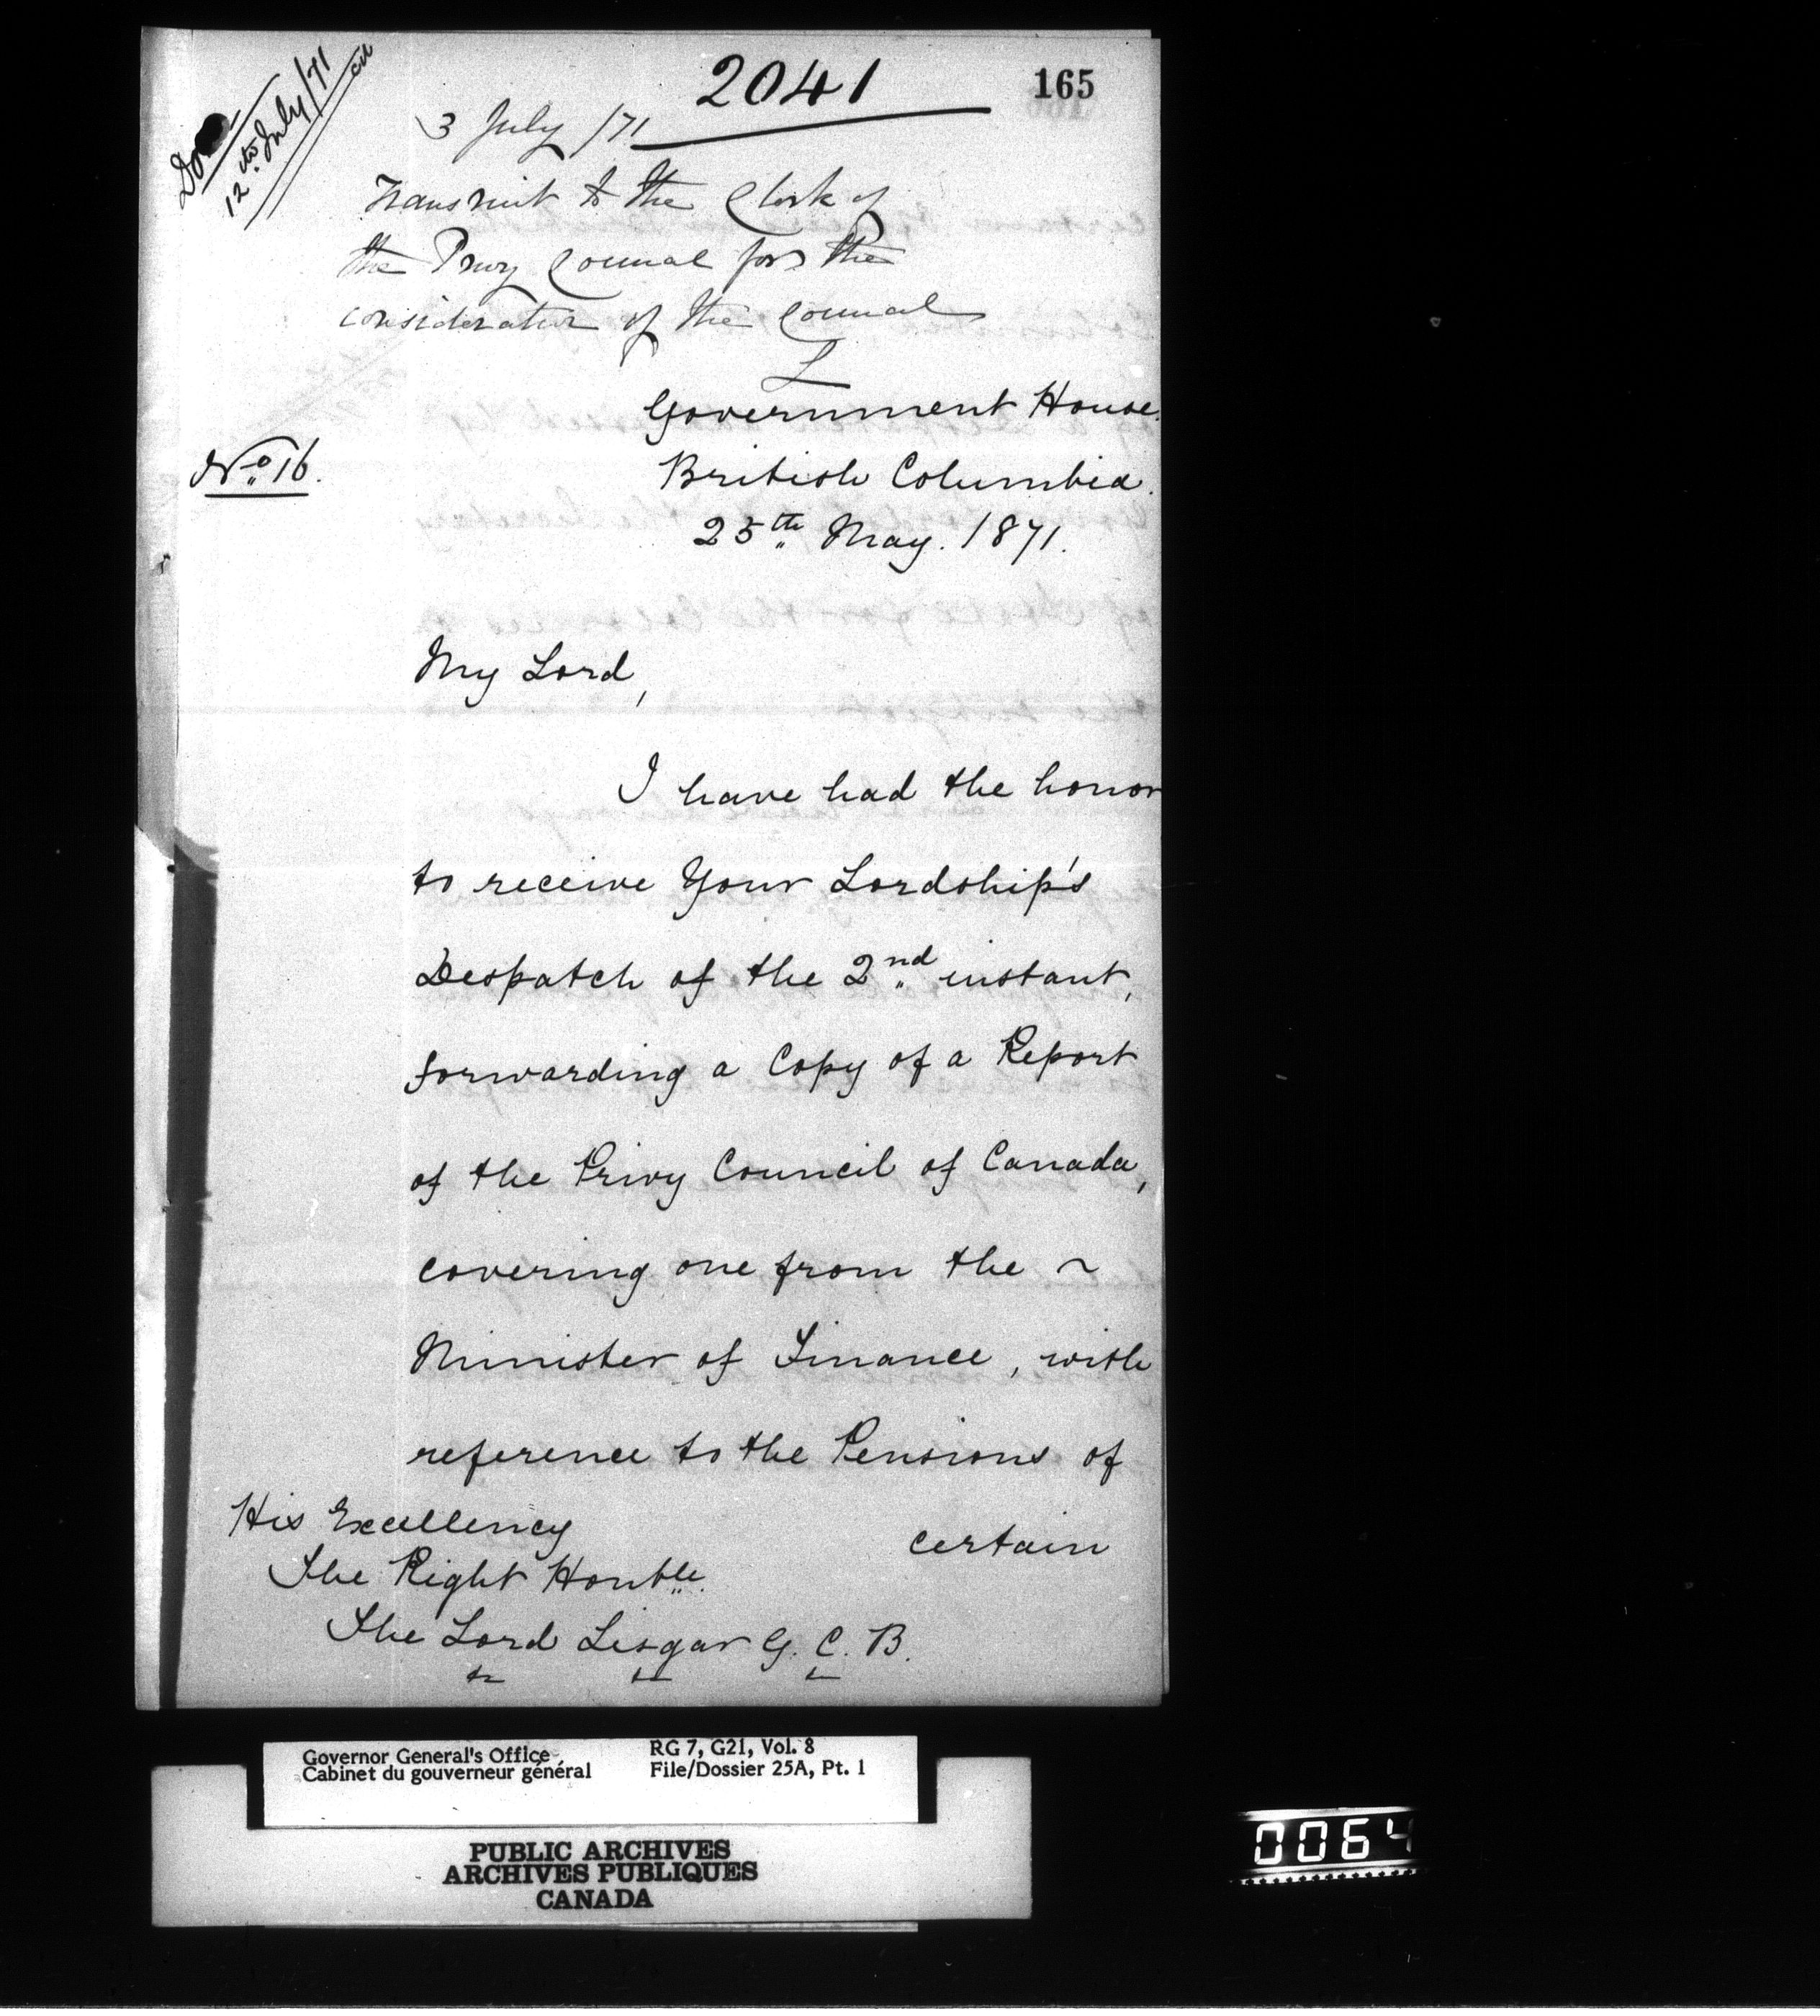 2041
165
Done
12th July/71
3 July /71
Transmit to the Clerk of
the Privy Council for the
consideration of the Council
L
Government House.
No. 16.
British Columbia.
25th May. 1871.
My Lord,
I have had the honor
to receive Your Lordship's
Despatch of the 2nd instant,
forwarding a Copy of a Report
of the Privy Council of Canada,
covering one from the ~
Minister of Finance, with
reference to the Pensions of
certain
His Excellency
The Right Honble.
The Lord Lisgar G. C. B.
Governor General's Office
Cabinet du gouverneur général
RG 7, G21, Vol. 8
File/Dossier 25A, Pt. 1
PUBLIC ARCHIVES
ARCHIVES PUBLIQUES
CANADA
0064